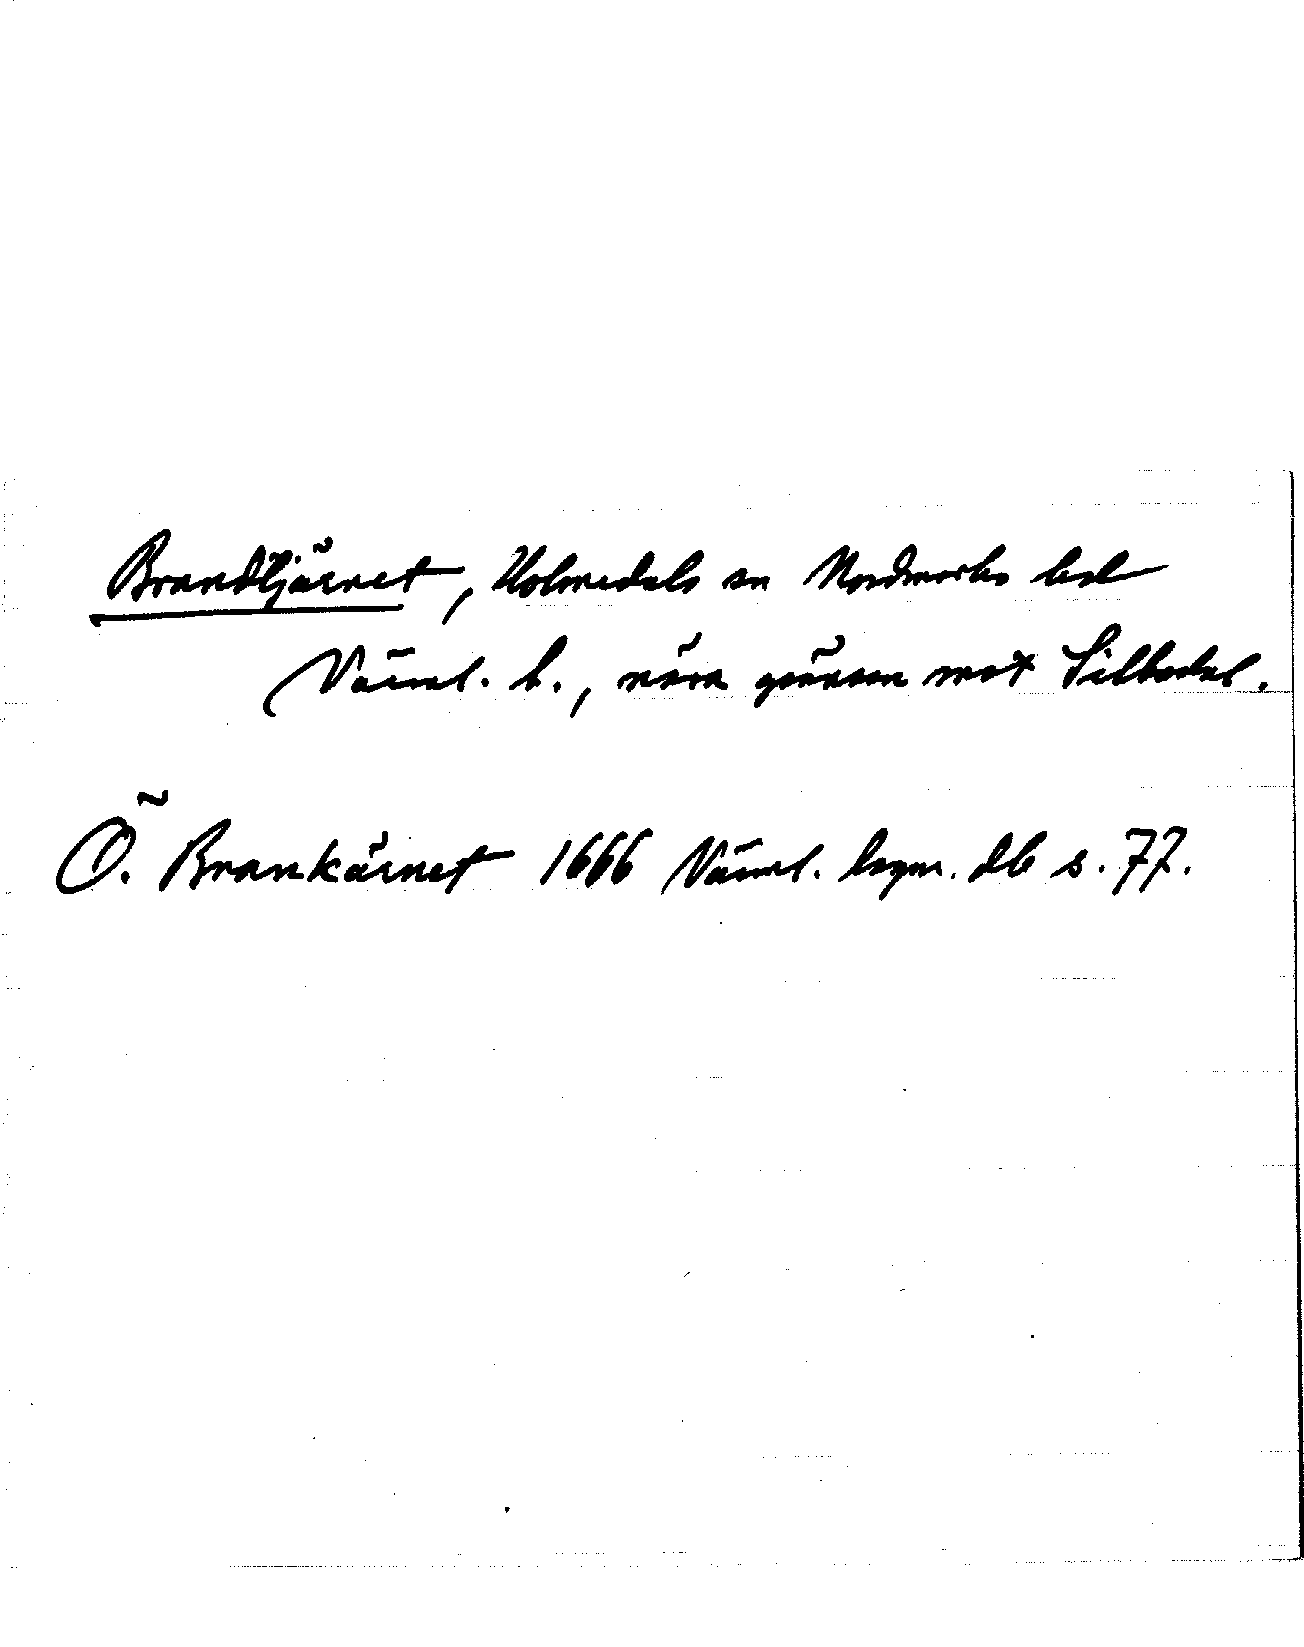 Brandtjärnet, Holmedals sn Nordmarks hd
Värml. l., nära gränsen mot Silbodal.
Ö. Brankärnet 1666 Värml. lagm. db s. 77.